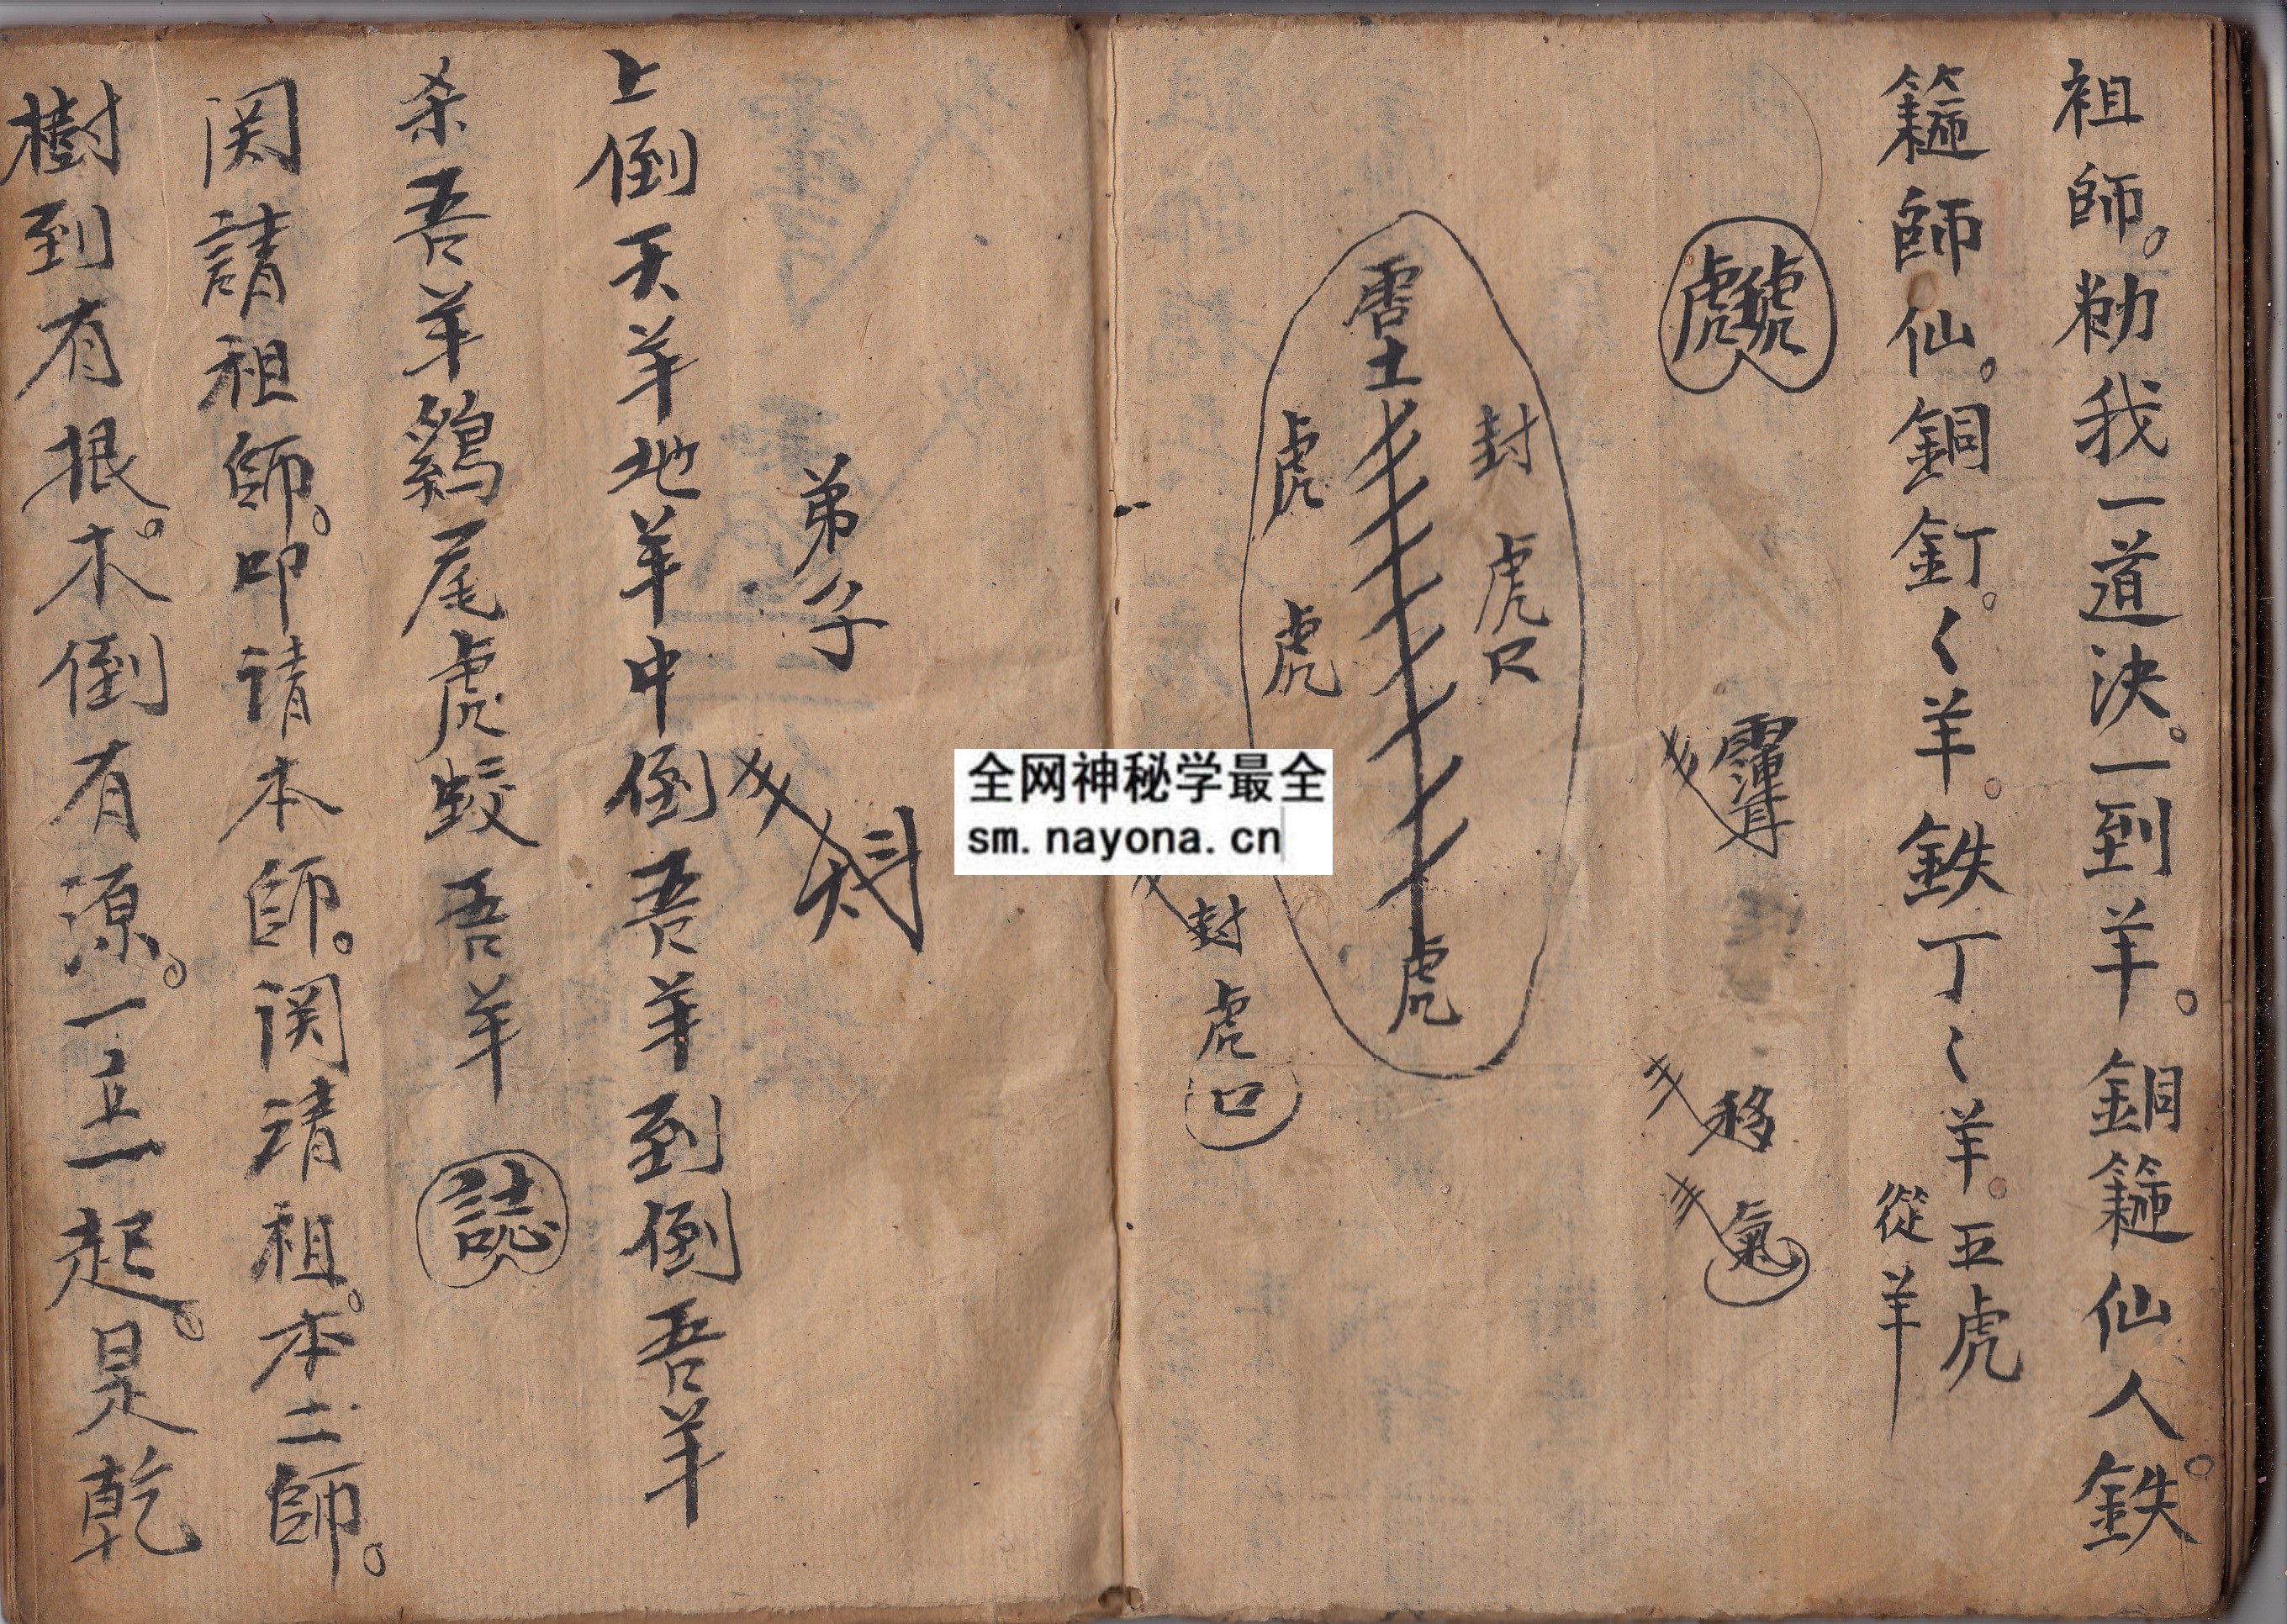 祖師。勅我一道決。一到羊。銅籬仙人。鉄
師仙。銅釘。〱羊。鉄丁〱羊。五虎
從羊
移
氣
封
虎口
虎
虎
土
虎
封
虎
口
全网神秘学最全
sm.nayona.cn
弟子
上倒天羊地羊中倒吾羊到倒吾羊
杀吾羊鷄尾虎蛟吾羊
誌
関請祖師。叩请本師。関请祖。本二師。
樹到有根。木倒有源。一立一起。是乾